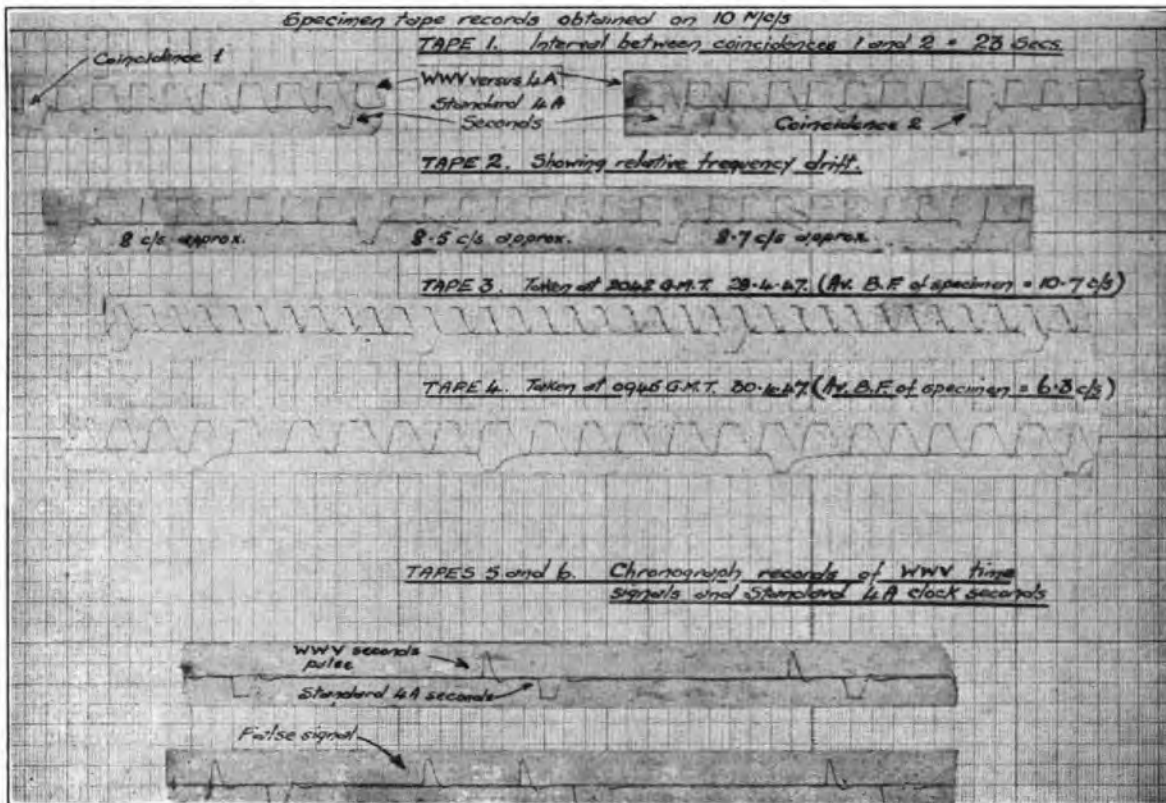 Specimen tape records obtained on 10 M/c/s
TAPE 1. Interval between coincidences 1 and 2 = 23 Secs.
Coincidence 1
WWV versus 4A
Standard 4A
Seconds
Coincidence 2
TAPE 2. Showing relative frequency drift.
8 c/s approx. 8.5 c/s approx. 8.7 c/s approx
TAPE 3. Taken at 2042 G.M.T. 28.4.47. (Av. B.F. of specimen = 10.7 c/s)
TAPE 4. Taken at 0945 G.M.T. 30.4.47. (Av. B.F. of specimen = 6.3 c/s)
TAPES 5 and 6. Chronograph records of WWV time
signals and Standard 4A clock seconds
WWV seconds
pulse
Standard 4A seconds
False signal